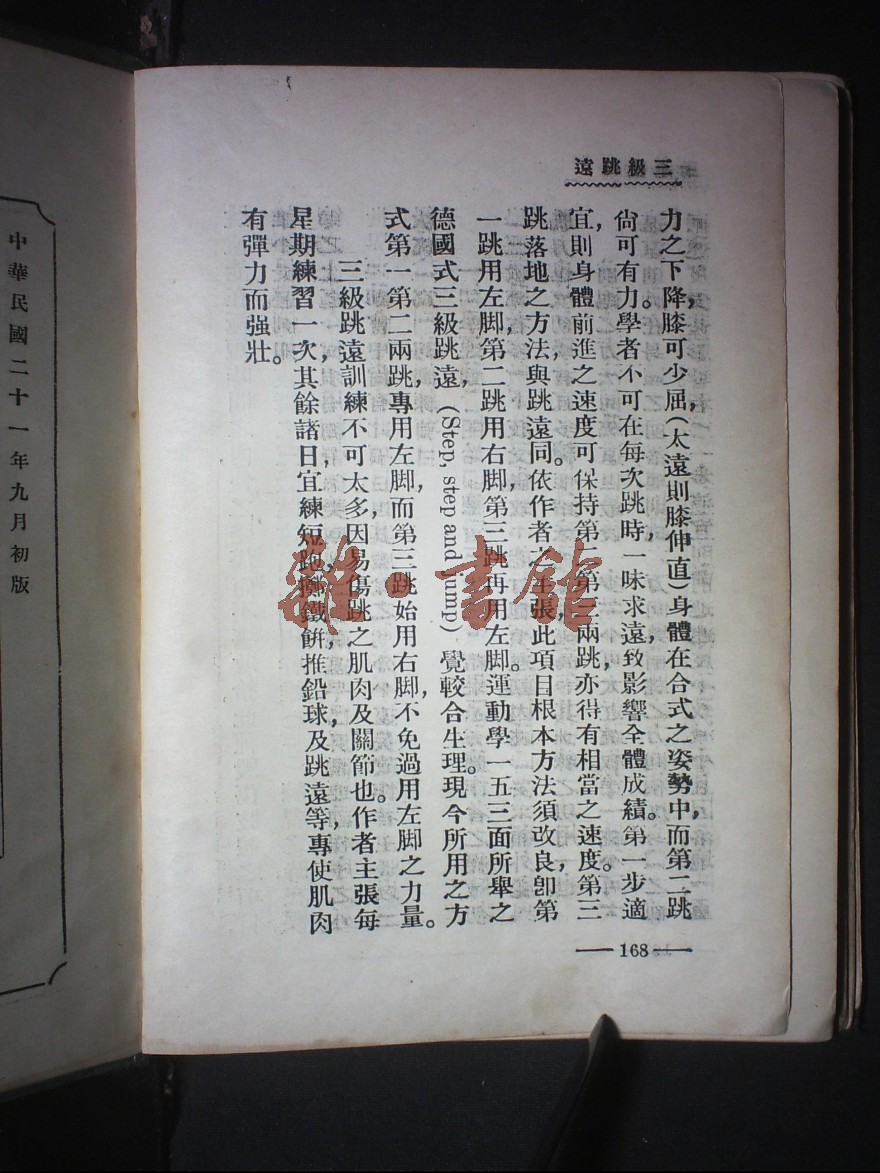 三級跳遠
力之下降,膝可少屈,(太遠則膝伸直)身體在合式之姿勢中,而第二跳
尙可有力。學者不可在每次跳時,一味求遠,致影響全體成績。第一步適
宜,則身體前進之速度可保持,第二第三兩跳,亦得有相當之速度。第三
跳落地之方法,與跳遠同。依作者之主張,此項目根本方法須改良,卽第
一跳用左脚,第二跳用右脚,第三跳再用左脚。運動學一五三面所舉之
德國式三級跳遠,(Step, step and jump)覺較合生理。現今所用之方
式第一第二兩跳,專用左脚,而第三跳始用右脚,不免過用左脚之力量。
三級跳遠訓練不可太多,因易傷跳之肌肉及關節也。作者主張每
星期練習一次,其餘諸日宜練短跑,擲鐵餅,推鉛球,及跳遠等,專使肌肉
有彈力而强壯。
168
中華民國二十一年九月初版
雜·書館